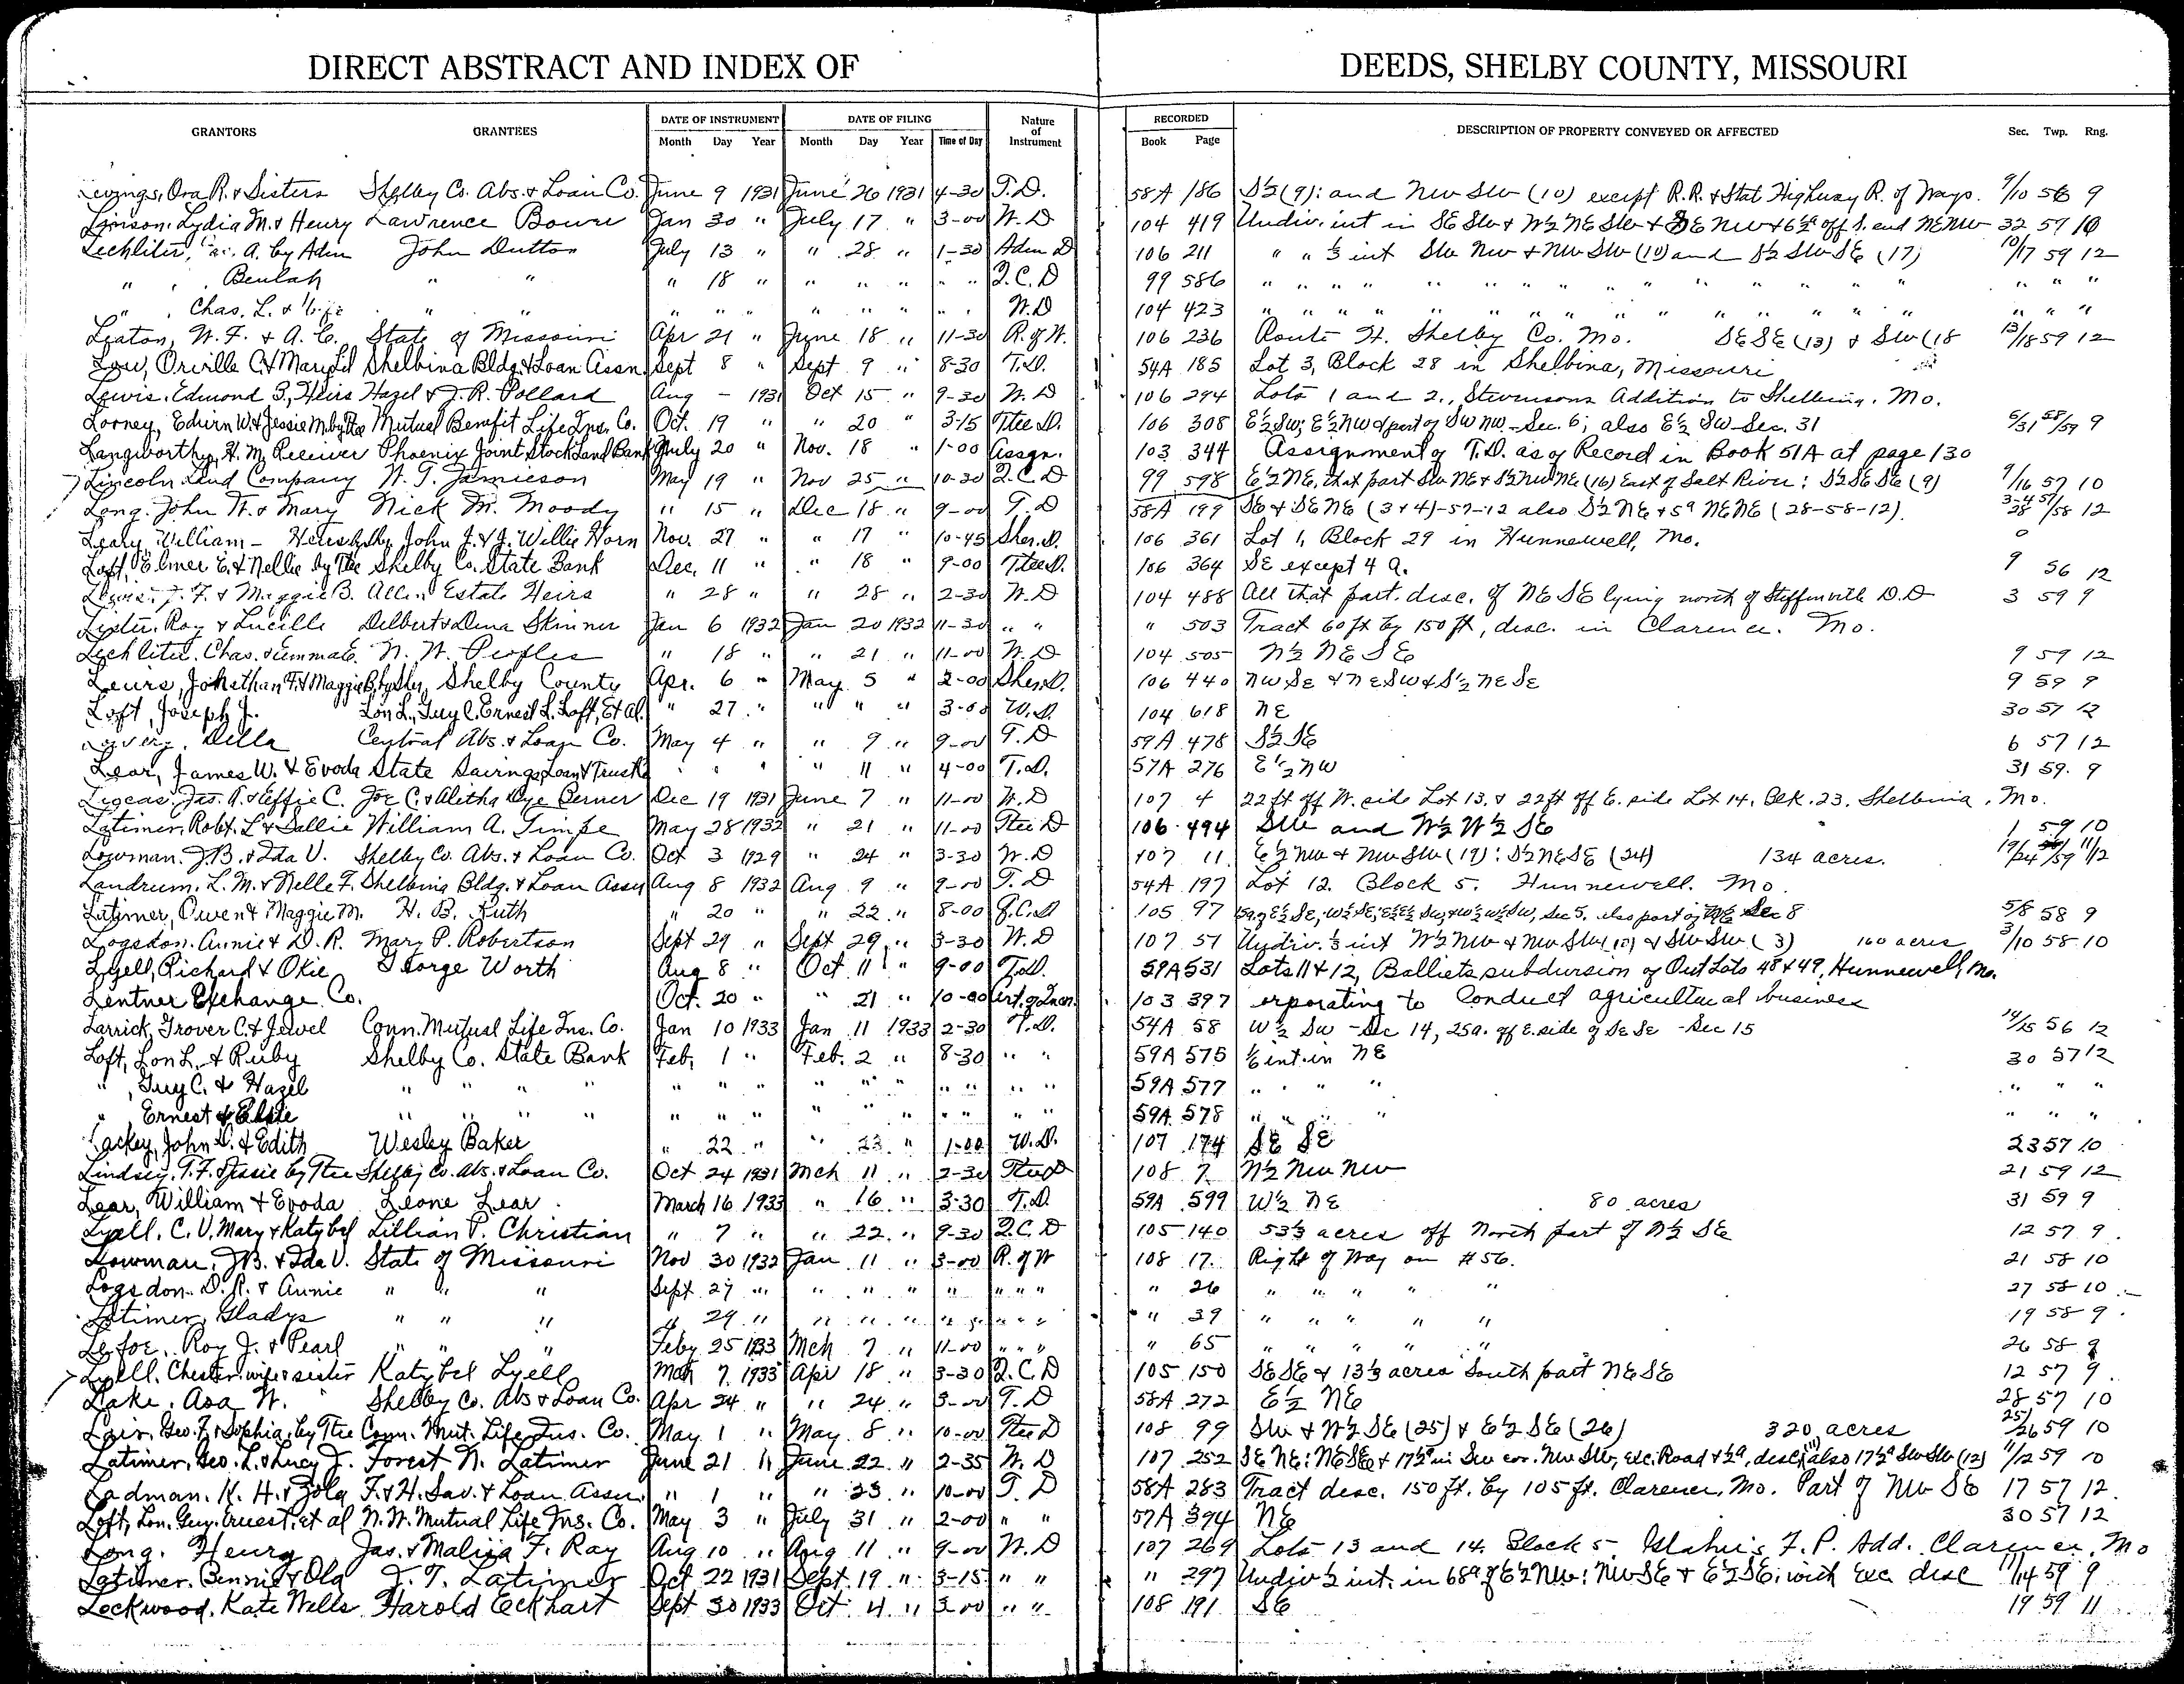 DIRECT ABSTRACT AND INDEX OF DEEDS, SHELBY COUNTY, MISSOURI
GRANTORS GRANTEES DATE OF INSTRUMENT DATE OF FILING Nature of Instrument RECORDED DESCRIPTION OF PROPERTY CONVEYED OR AFFECTED Sec. Twp. Rng.
Month Day Year Month Day Year Time of Day Book Page
Ora R. & Sisters Shelby Co. Abs. & Loan Co. June 9 1931 June 26 1931 4-30 T.D. 58A 186 S½ (9): and NW SW (10) except R.R. & Stat Highway R. of Ways. 9/10 56 9
Lydia M. & Henry Lawrence Bowre Jan 30 " July 17 " 3-00 W.D 104 419 Undiv. int in SE SW & W½ NE SW & SE NW & 6½a off S. end NENW 32 59 10
Lechliter, A. by Adm John Dutton July 13 " " 28 " 1-30 Adm D 106 211 " " ⅓ int SW NW & NW SW (10) and S½ SW SE (17) 10/17 59 12
" , Beulah " " " 18 " " " " " " Q.C.D 99 586 " " " " " " " " " " " " " " "
" , Chas. L. & Wife " " " " " " " " " " W.D 104 423 " " " " " " " " " " " " " " "
Leaton, W. F. & A. C. State of Missouri Apr 21 " June 18 " 11-30 R. of W. 106 236 Route H. Shelby Co. Mo. SE SE (13) & SW (18 13/18 59 12
Low, Orville C. & Mary Shelbina Bldg. & Loan Assn. Sept 8 " Sept 9 " 8-30 T.D. 54A 185 Lot 3, Block 28 in Shelbina, Missouri
Lewis, Edmond B., Heirs Hazel & J. R. Pollard Aug - 1931 Oct 15 " 9-30 W.D 106 294 Lots 1 and 2., Stevensons Addition to Shelbina, Mo.
Looney, Edwin W. & Jessie M. by Tee Mutual Benefit Life Ins. Co. Oct. 19 " " 20 " 3-15 Tee D. 106 308 E½ SW; E½ NW & part of SW NW - Sec. 6; also E½ SW - Sec. 31 6/31 58/59 9
Langworthy, H. M. Receiver Phoenix Joint Stock Land Bank July 20 " Nov. 18 " 1-00 Assgn. 103 344 Assignment of T.D. as of Record in Book 51A at page 130
Lincoln Land Company W. T. Jamieson May 19 " Nov 25 " 10-30 Q.C.D 99 598 E½ NE, that part SW NE & S½ NW NE (16) East of Salt River: S½ SE SE (9) 9/16 57 10
Long, John W. & Mary Nick M. Moody " 15 " Dec 18 " 9-00 T.D 58A 199 SE & SE NE (3 & 4)-57-12 also S½ NE & 5a NE NE (28-58-12) 3-4/28 57/58 12
Leary, William - John J. & J. Willie Horn Nov. 27 " " 17 " 10-45 Sher. D. 106 361 Lot 1, Block 29 in Hunnewell, Mo.
Loft, Elmer E. & Nellie by Tee Shelby Co. State Bank Dec. 11 " " 18 " 9-00 Tee D. 106 364 SE except 4 a. 9 56 12
Lewis, J. F. & Maggie B. Allen Estate Heirs " 28 " " 28 " 2-30 W.D 104 488 All that part. desc. of NE SE lying north of Steffinville D.D 3 59 9
Lister, Roy & Lucille Delbert & Dena Skinner Jan 6 1932 Jan 20 1932 11-30 " " " 503 Tract 60 ft by 150 ft, desc. in Clarence. Mo.
Lechliter, Chas. & Emma E. N. W. Peoples " 18 " " 21 " 11-00 W.D 104 505 N½ NE SE 9 59 12
Lewis, Johnathan F. & Maggie B. by Sher. Shelby County Apr. 6 " May 5 " 2-00 Sher. D. 106 440 NW SE & NE SW & S½ NE SE 9 59 9
Loft, Joseph J. Lon L., Guy C. Ernest L. Loft, Et Al. " 27 " " " " 3-00 W.D. 104 618 NE 30 57 12
Della Central Abs. & Loan Co. May 4 " " 9 " 9-00 T.D 59A 478 S½ SE 6 57 12
Lear, James W. & Evoda State Savings Loan & Trust " " " " 11 " 4-00 T.D. 57A 276 E½ NW 31 59 9
Lucas, Jas. A. & Effie C. Joe C. & Alitha Dye Berner Dec 19 1931 June 7 " 11-00 W.D 107 4 22 ft off W. side Lot 13. & 22 ft off E. side Lot 14, Blk. 23, Shelbina, Mo.
Latimer, Robt. L. & Sallie William A. Timpe May 28 1932 " 21 " 11-00 Tee D 106 494 SW and W½ W½ SE 1 59 10
Lowman, J.B. & Ida V. Shelby Co. Abs. & Loan Co. Oct 3 1929 " 24 " 3-30 W.D 107 11 E½ NW & NW SW (19): S½ NE SE (24) 134 acres. 19/24 59 11/12
Landrum, L. M. & Nelle F. Shelbina Bldg. & Loan Assn Aug 8 1932 Aug. 9 " 9-00 T.D 54A 197 Lot 12. Block 5. Hunnewell. Mo.
Latimer, Owen & Maggie M. H. B. Ruth " 20 " " 22 " 8-00 Q.C.D 105 97 Sec 5. also part of Sec 8 5/8 58 9
Logsdon, Annie & D. R. Mary P. Robertson Sept 29 " Sept 29 " 3-30 W.D 107 51 Undiv. ⅓ int W½ NW & NW SW (10) & SW SW (3) 160 acres 3/10 58 10
Lyell, Richard & Okie George Worth Aug 8 " Oct 11 " 9-00 T.D. 59A 531 Lots 11 & 12, Balliets subdivision of Out Lots 48 & 49, Hunnewell, Mo.
Lentner Exchange Co. Oct. 20 " " 21 " 10-00 Cert. of Incn. 103 397 orporating to Conduct agricultural business
Larrick, Grover C. & Jewel Conn. Mutual Life Ins. Co. Jan 10 1933 Jan 11 1933 2-30 T.D. 54A 58 W½ SW - Sec 14, 25a. off E. side of SE SE - Sec 15 14/15 56 12
Loft, Lon L. & Ruby Shelby Co. State Bank Feb. 1 " Feb. 2 " 8-30 " " 59A 575 int. in NE 30 57 12
" , Guy C. & Hazel " " " " " " " " " " " " " " 59A 577 " " " " " " "
" Ernest & Elsie " " " " " " " " " " " " " " 59A 578 " " " " " " "
Lackey, John D. & Edith Wesley Baker " 22 " " 23 " 1-00 W.D. 107 174 SE SE 23 57 10
Lindsey, T. F. & Jessie by Tee Shelby Co. Abs. & Loan Co. Oct 24 1931 Mch 11 " 2-30 Tee D 108 7 N½ NW NW 21 59 12
Lear, William & Evoda Leone Lear March 16 1933 " 16 " 3-30 T.D. 59A 599 W½ NE 80 acres 31 59 9
Lyell, C. V. Mary & Katybel Lillian P. Christian " 7 " " 22 " 9-30 Q.C.D 105 140 53⅓ acres off North part of N½ SE 12 57 9
Lowman, J.B. & Ida V. State of Missouri Nov 30 1932 Jan 11 " 3-00 R. of W 108 17 Right of Way on #56. 21 58 10
Logsdon, D. R. & Annie " " " Sept 27 " " " " " " " " " 26 " " " " " 27 58 10
Latimer, Gladys " " " " 29 " " " " " " " " " 39 " " " " " 19 58 9
Lefoe, Roy J. & Pearl " " " Feby 25 1933 Mch 7 " 11-00 " " " " 65 " " " " " 26 58 9
Lyell, Chester, wife & sister Katybel Lyell Mch 7 1933 Apr 18 " 3-30 Q.C.D 105 150 SE SE & 13⅓ acres South part NE SE 12 57 9
Lake, Asa W. Shelby Co. Abs & Loan Co. Apr 24 " " 24 " 3-00 T.D 58A 272 E½ NE 28 57 10
Lair, Geo. F. & Sophia, by Tee Conn. Mut. Life Ins. Co. May 1 " May 8 " 10-00 Tee D 108 99 SW & W½ SE (25) & E½ SE (26) 320 acres 25/26 59 10
Latimer, Geo. L. & Lucy J. Forest N. Latimer June 21 " June 22 " 2-35 W.D 107 252 SE NE: NE SE & 17½a in SW cor. NW SW, exc. Road & ½a, desc (11) also 17½a SW SW (12) 11/12 59 10
Ladman, K. H. & Zola F. & H. Sav. & Loan Assn. " 1 " " 23 " 10-00 T.D 58A 283 Tract desc. 150 ft. by 105 ft. Clarence, Mo. Part of NW SE 17 57 12
Loft, Lon. Guy. Ernest. et al N. W. Mutual Life Ins. Co. May 3 " July 31 " 2-00 " " 57A 394 NE 30 57 12
Long, Henry Jas. & Malissa F. Ray Aug 10 " Aug 11 " 9-00 W.D 107 269 Lots 13 and 14. Block 5. F. P. Add. Clarence, Mo
Latimer, Bennie & Ola J. T. Latimer Oct 22 1931 Sept. 19 " 3-15 " " " 297 Undiv ½ int. in 68a of E½ NW: NW SE & E½ SE: with Exc. desc 11/14 59 9
Lockwood, Kate Wells Harold Eckhart Sept 30 1933 Oct 4 " 3-00 " " 108 191 SE 19 59 11